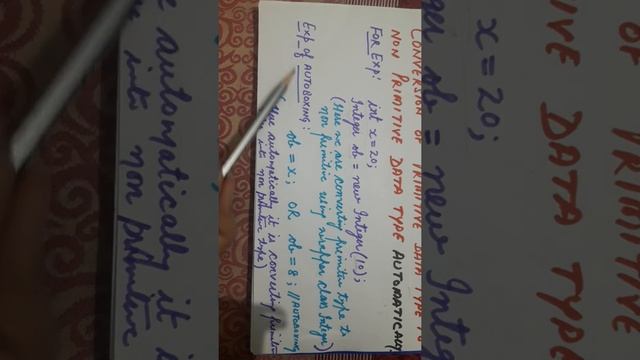 CONVERSION OF PRIMITIVE DATA TYPE TO
NON PRIMITIVE DATA TYPE AUTOMATICALLY
FOR EXP:
int x = 20;
Integer ob = new Integer(10);
(Here we are converting primitive type to
non primitive using wrapper class Integer)
Exp of AUTOBOXING:
ob = x; OR ob = 8; //AUTOBOXING
automatically it is converting primitive
into non primitive type)